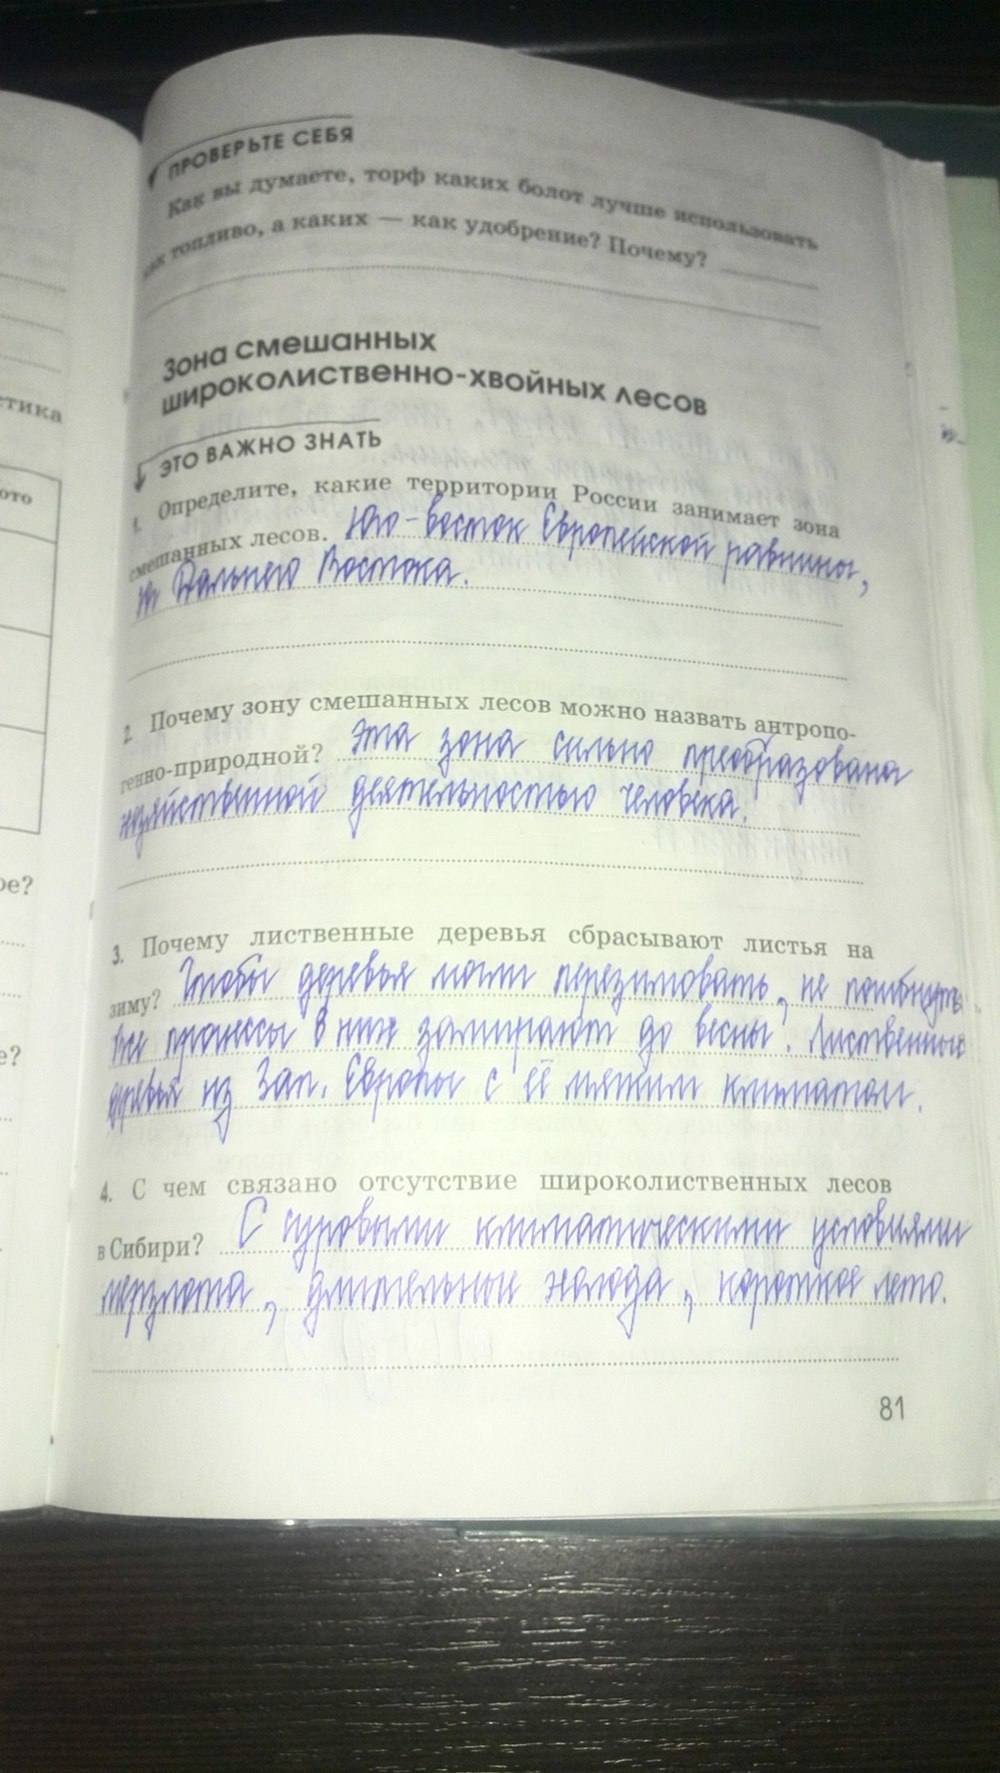 ПРОВЕРЬТЕ СЕБЯ
Как вы думаете, торф каких болот лучше использовать
как топливо, а каких — как удобрение? Почему?
Зона смешанных
широколиственно-хвойных лесов
ЭТО ВАЖНО ЗНАТЬ
1. Определите, какие территории России занимает зона
смешанных лесов. Юго-восток Европейской равнины,
Дальнего Востока.
2. Почему зону смешанных лесов можно назвать антропо-
генно-природной? Эта зона сильно преобразована
хозяйственной деятельностью человека.
3. Почему лиственные деревья сбрасывают листья на
зиму? Чтобы деревья могли перезимовать, не погибнуть
Все процессы в них замирают до весны. Лиственные
деревья из Зап. Европы с её мягким климатом.
4. С чем связано отсутствие широколиственных лесов
в Сибири? С суровыми климатическими условиями
мерзлота, длительные холода, короткое лето.
81
тика
ото
ре?
е?